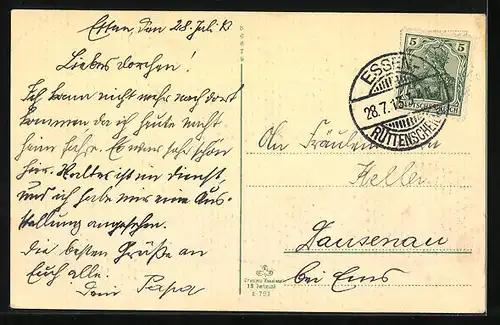 Essen, den 28. Juli 13
Liebes Dorchen!
Ich kann nicht mehr nach dort
kommen da ich heute Nacht
heim fahre. Es war sehr schön
hier. Walter ist im Dienst,
und ich habe mir eine Aus-
stellung angesehen.
Die besten Grüße an
Euch alle.
Dein Papa
5
5
ESSEN-
28.7.13
RÜTTENSCHEID
An Fräulein
Keller
Dausenau
bei Ems